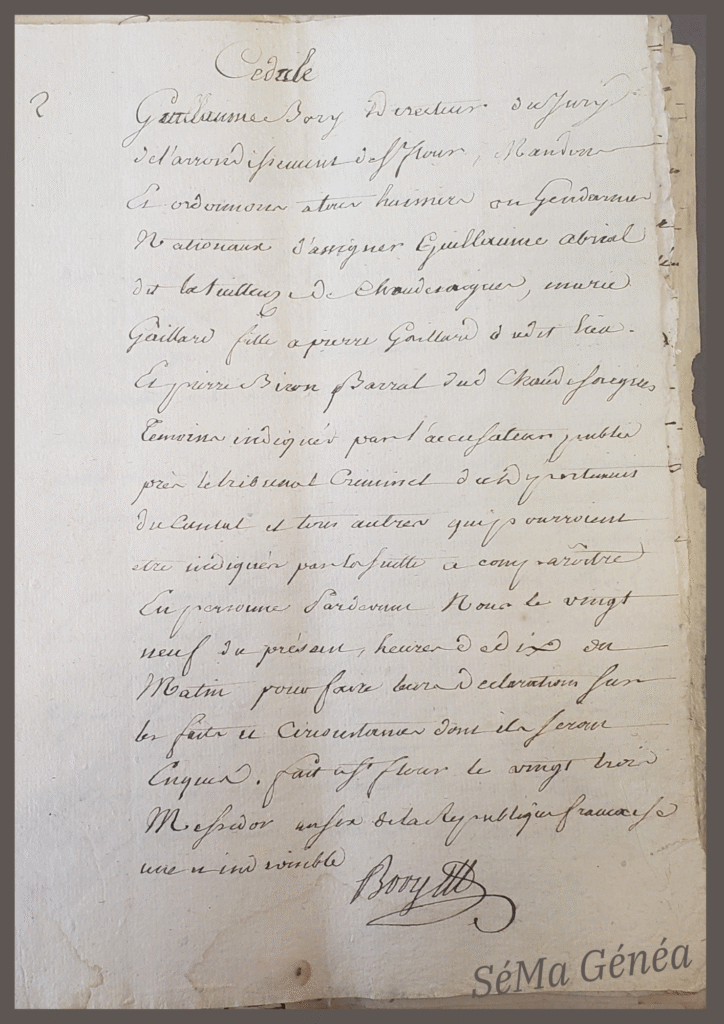 Cedule
Guillaume Bory Directeur du Jury
de l'arrondissement de St flour, Mandons
Et ordonnons a tous huissiers ou Gendarmes
Nationaux d'assigner Guillaume abrial
dit de Chaudesaigues, marie
Gaillard fille a pierre Gaillard dudit lieu.
Et pierre Biron Barral dud Chaudesaigues
Temoins indiqués par l'accusateur public
près le tribunal Criminel du Departement
du Cantal et tous autres qui pourroient
etre indiqués par la suitte a comparoître
En personne Pardevant Nous le vingt
neuf du présent, heures de dix du
Matin pour faire leurs declarations sur
les faits et Circonstances dont ils seront
Enquis. fait a St flour le vingt trois
Messidor an six de la Republique francaise
une et indivisible
Bory
SéMa Généa